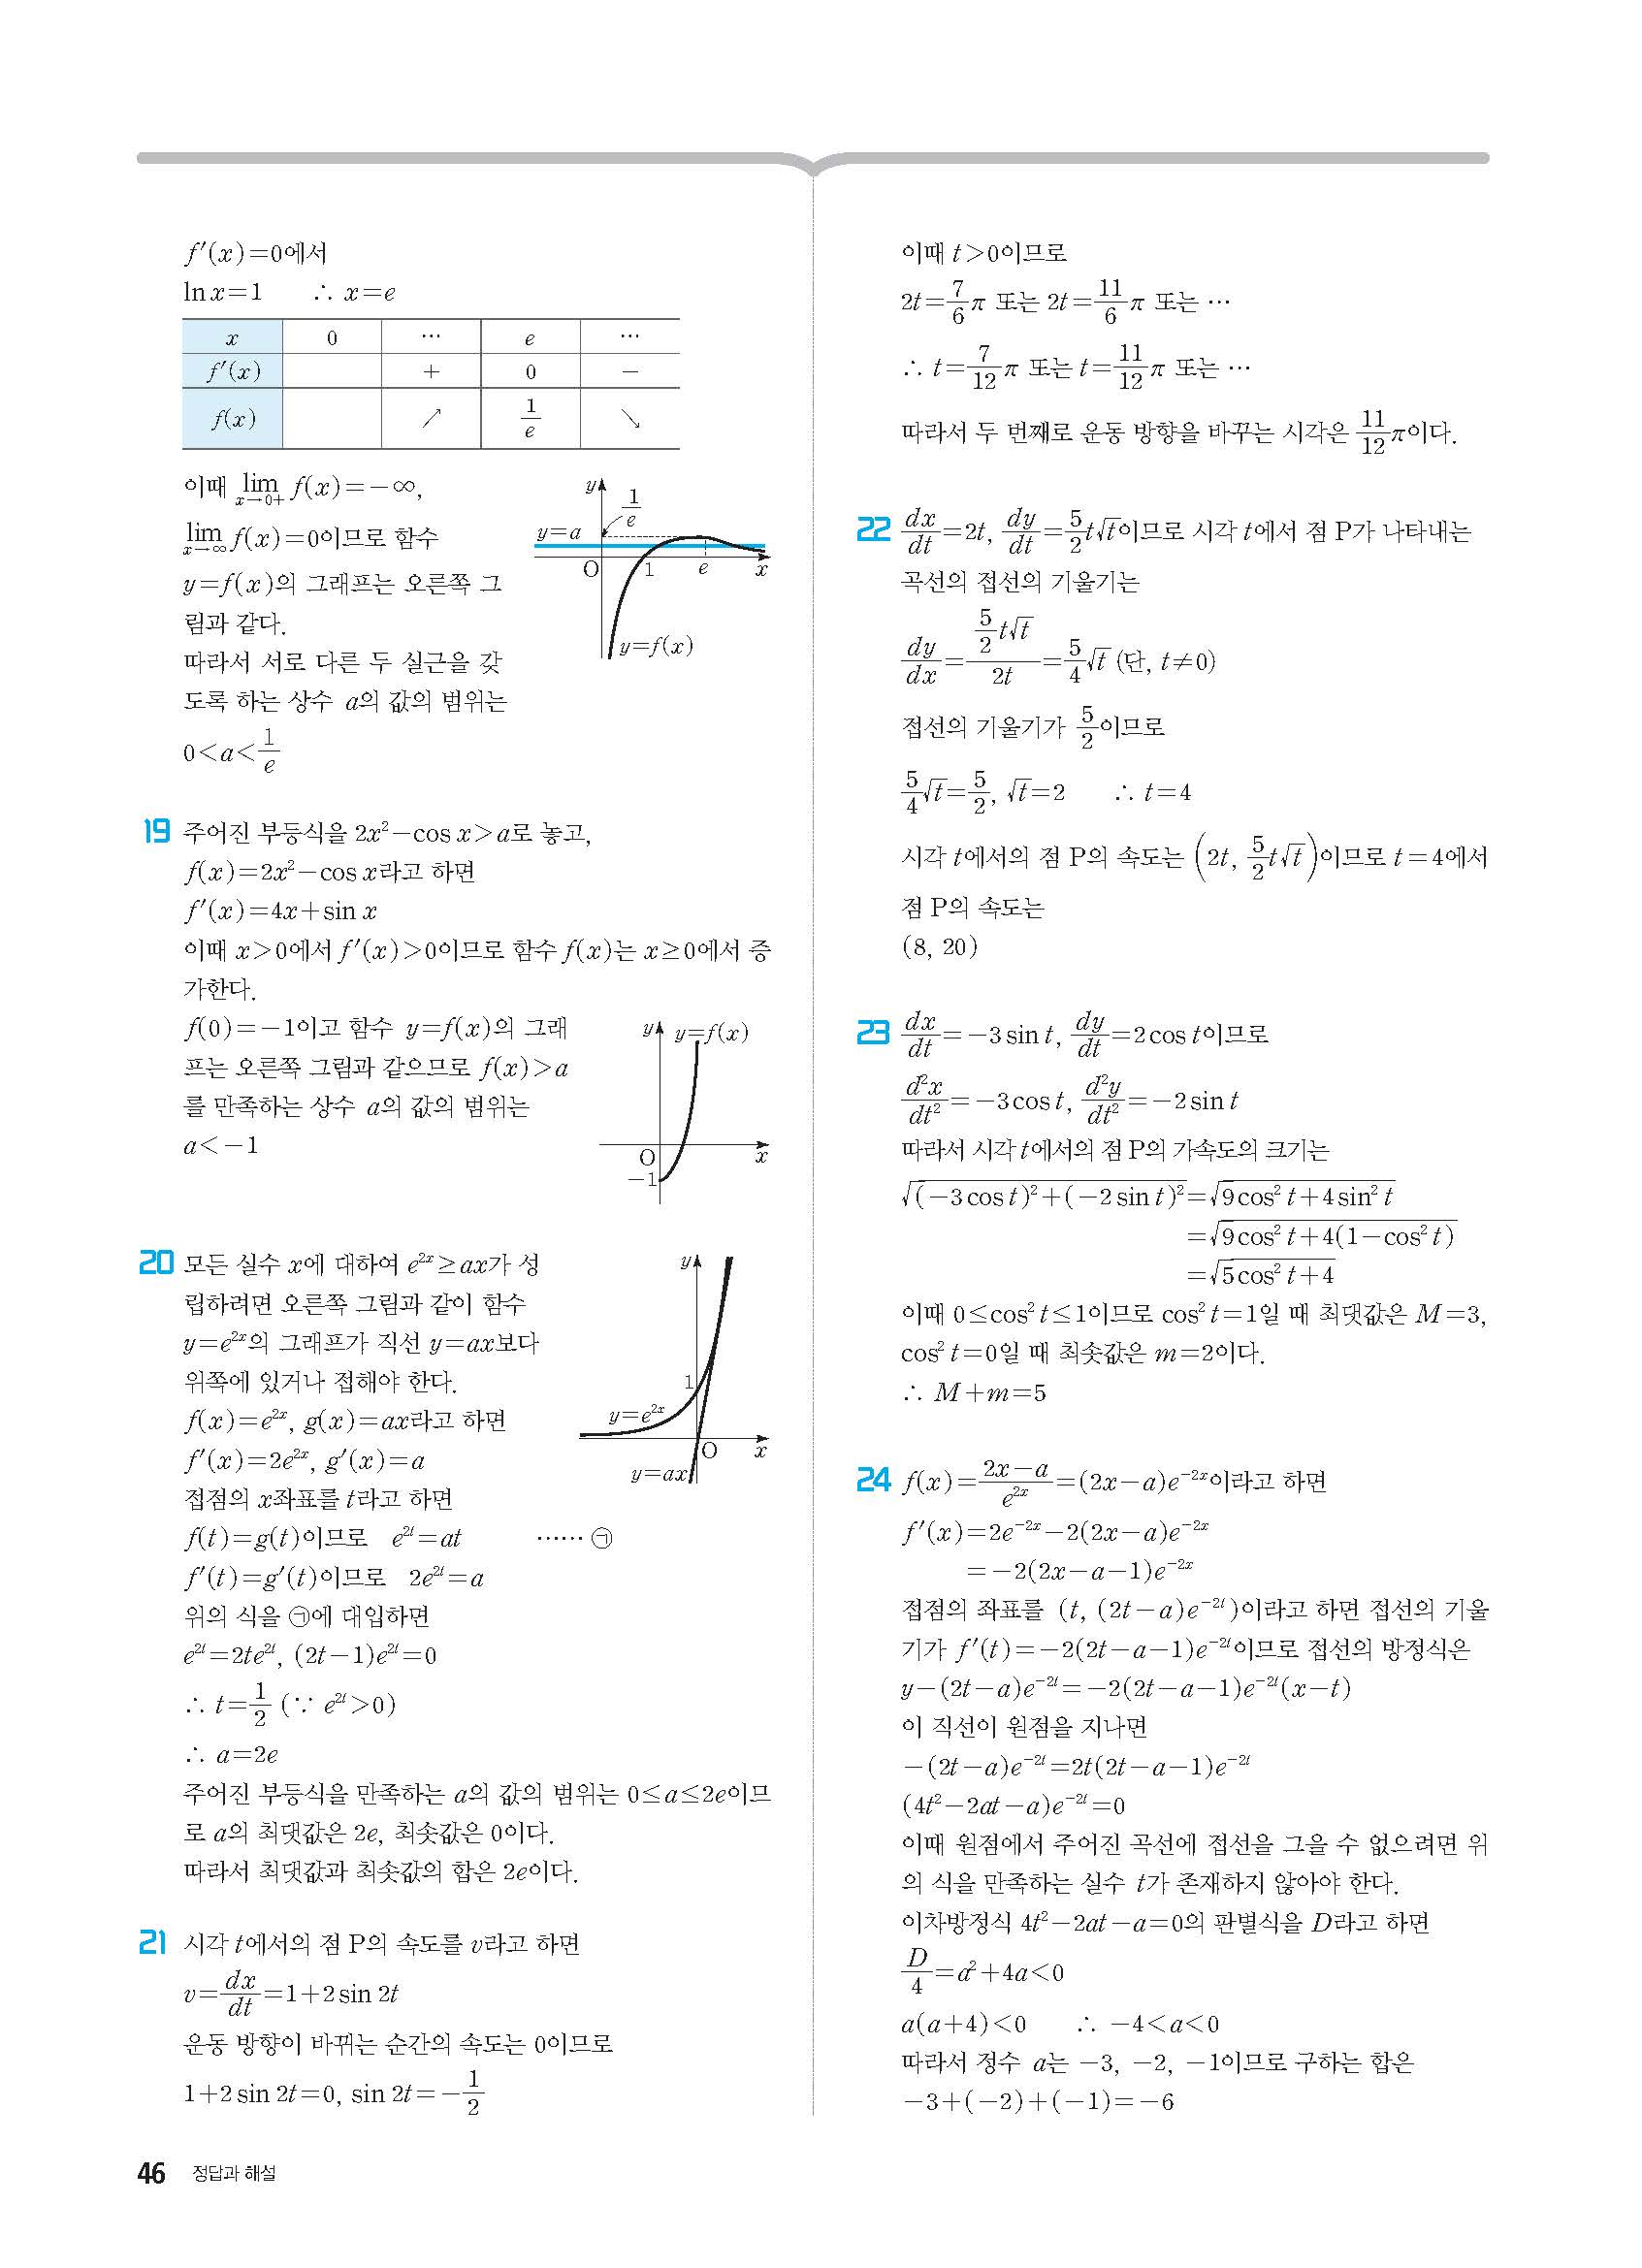 f′(x)=0에서
ln x=1  ∴ x=e
x 0 ⋯ e ⋯
f′(x) + 0 −
f(x) ↗ 1/e ↘
이때 lim_{x→0+} f(x)=−∞,
lim_{x→∞} f(x)=0이므로 함수
y=f(x)의 그래프는 오른쪽 그
림과 같다.
따라서 서로 다른 두 실근을 갖
도록 하는 상수 a의 값의 범위는
0<a<1/e
y
1/e
y=a
O 1 e x
y=f(x)
19 주어진 부등식을 2x²−cos x>a로 놓고,
f(x)=2x²−cos x라고 하면
f′(x)=4x+sin x
이때 x>0에서 f′(x)>0이므로 함수 f(x)는 x≥0에서 증
가한다.
f(0)=−1이고 함수 y=f(x)의 그래
프는 오른쪽 그림과 같으므로 f(x)>a
를 만족하는 상수 a의 값의 범위는
a<−1
y y=f(x)
O x
−1
20 모든 실수 x에 대하여 e^{2x}≥ax가 성
립하려면 오른쪽 그림과 같이 함수
y=e^{2x}의 그래프가 직선 y=ax보다
위쪽에 있거나 접해야 한다.
f(x)=e^{2x}, g(x)=ax라고 하면
f′(x)=2e^{2x}, g′(x)=a
접점의 x좌표를 t라고 하면
f(t)=g(t)이므로 e^{2t}=at ⋯⋯ ㉠
f′(t)=g′(t)이므로 2e^{2t}=a
위의 식을 ㉠에 대입하면
e^{2t}=2te^{2t}, (2t−1)e^{2t}=0
∴ t=1/2 (∵ e^{2t}>0)
∴ a=2e
주어진 부등식을 만족하는 a의 값의 범위는 0≤a≤2e이므
로 a의 최댓값은 2e, 최솟값은 0이다.
따라서 최댓값과 최솟값의 합은 2e이다.
y
1
y=e^{2x}
O x
y=ax
21 시각 t에서의 점 P의 속도를 v라고 하면
v=dx/dt=1+2 sin 2t
운동 방향이 바뀌는 순간의 속도는 0이므로
1+2 sin 2t=0, sin 2t=−1/2
이때 t>0이므로
2t=7/6π 또는 2t=11/6π 또는 ⋯
∴ t=7/12π 또는 t=11/12π 또는 ⋯
따라서 두 번째로 운동 방향을 바꾸는 시각은 11/12π이다.
22 dx/dt=2t, dy/dt=5/2t√t이므로 시각 t에서 점 P가 나타내는
곡선의 접선의 기울기는
dy/dx=(5/2t√t)/2t=5/4√t (단, t≠0)
접선의 기울기가 5/2이므로
5/4√t=5/2, √t=2  ∴ t=4
시각 t에서의 점 P의 속도는 (2t, 5/2t√t)이므로 t=4에서
점 P의 속도는
(8, 20)
23 dx/dt=−3 sin t, dy/dt=2 cos t이므로
d²x/dt²=−3 cos t, d²y/dt²=−2 sin t
따라서 시각 t에서의 점 P의 가속도의 크기는
√((−3 cos t)²+(−2 sin t)²)=√(9 cos² t+4 sin² t)
=√(9 cos² t+4(1−cos² t))
=√(5 cos² t+4)
이때 0≤cos² t≤1이므로 cos² t=1일 때 최댓값은 M=3,
cos² t=0일 때 최솟값은 m=2이다.
∴ M+m=5
24 f(x)=(2x−a)/e^{2x}=(2x−a)e^{−2x}이라고 하면
f′(x)=2e^{−2x}−2(2x−a)e^{−2x}
=−2(2x−a−1)e^{−2x}
접점의 좌표를 (t, (2t−a)e^{−2t})이라고 하면 접선의 기울
기가 f′(t)=−2(2t−a−1)e^{−2t}이므로 접선의 방정식은
y−(2t−a)e^{−2t}=−2(2t−a−1)e^{−2t}(x−t)
이 직선이 원점을 지나면
−(2t−a)e^{−2t}=2t(2t−a−1)e^{−2t}
(4t²−2at−a)e^{−2t}=0
이때 원점에서 주어진 곡선에 접선을 그을 수 없으려면 위
의 식을 만족하는 실수 t가 존재하지 않아야 한다.
이차방정식 4t²−2at−a=0의 판별식을 D라고 하면
D/4=a²+4a<0
a(a+4)<0  ∴ −4<a<0
따라서 정수 a는 −3, −2, −1이므로 구하는 합은
−3+(−2)+(−1)=−6
46 정답과 해설